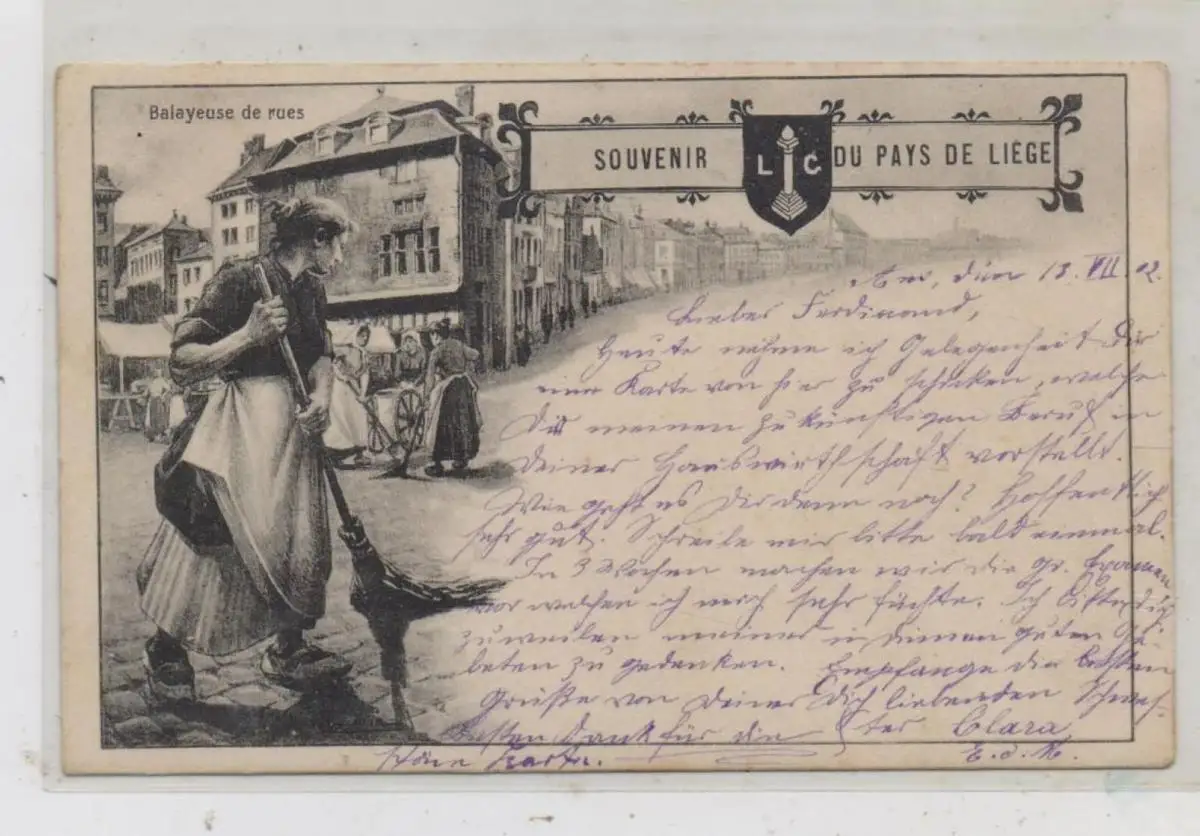 Balayeuse de rues
SOUVENIR L G DU PAYS DE LIÈGE
den 13. VII. 02.
Liebes Ferdinand,
Heute nehme ich Gelegenheit Dir
eine Karte von hier zu schicken, welche
Dir meinen zukünftigen Beruf in
Deiner Hauswirthschaft vorstellt.
Wie geht es Dir denn noch? Hoffentlich
sehr gut. Schreibe mir bitte bald einmal.
In 3 Wochen machen wir die Gr. Examen
vor welchen ich mich sehr fürchte. Ich bitte Dich
zuweilen meiner in Deinen guten Ge
beten zu gedenken. Empfange die besten
Grüße von Deiner Dich liebenden Schwes-
ter Clara
Besten Dank für die
schöne Karte.
E. d. M.